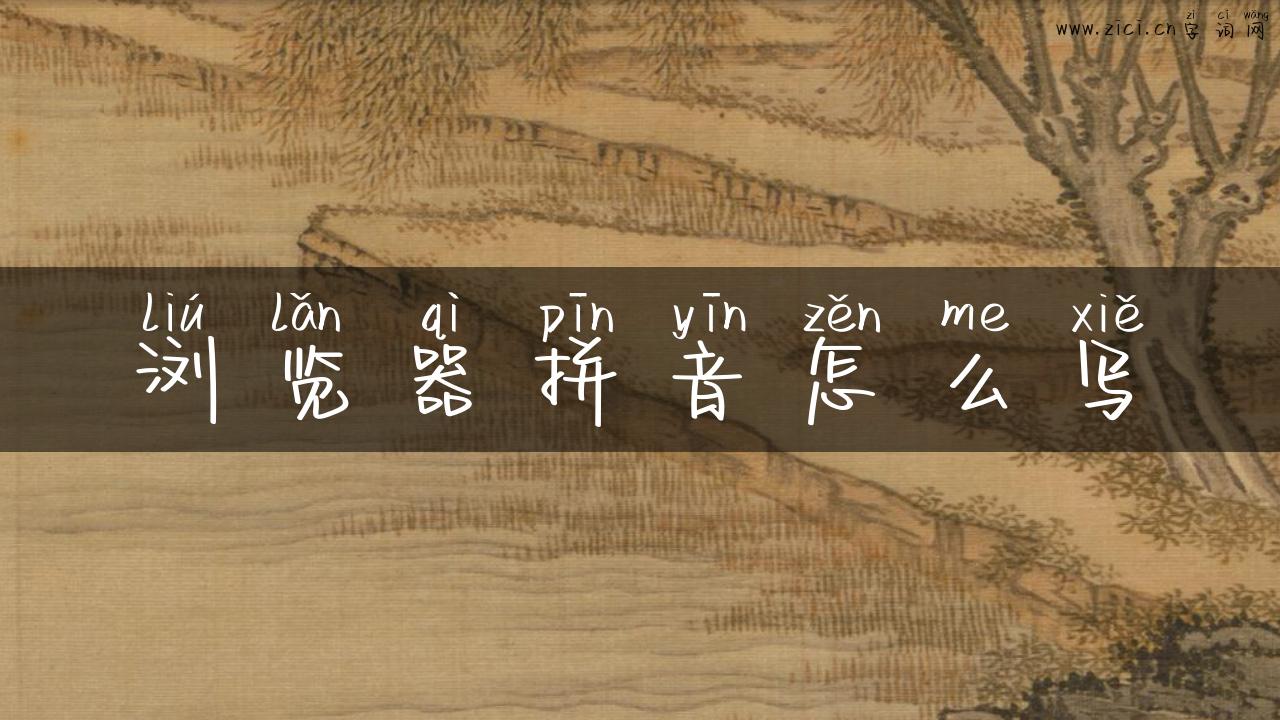 zì cí wǎng
www.zici.cn字词网
liú lǎn qì pīn yīn zěn me xiě
浏览器拼音怎么写